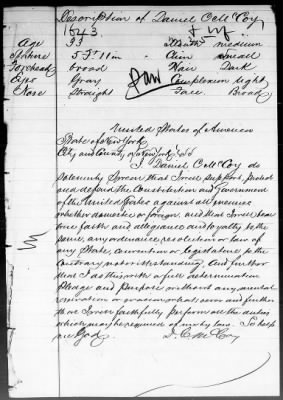 Description of Daniel C Mc Coy
1543
Age 33 Mouth medium
Stature 5 Ft 11 in Chin Small
Forehead broad Hair Dark
Eyes Gray Complexion light
Nose Straight Face Broad
United States of America
State of New York
City and County of New York SS
I Daniel C Mc Coy do
solemnly swear that I will support, protect
and defend the Constitution and Government
of the United States against all enemies
whether domestic or foreign, and that I will bear
true faith and allegiance and loyalty to the
same, any ordinance, resolution or law of
any State, Convention or Legislature to the
contrary notwithstanding. And further
that I do this with a full determination
pledge and purpose without any mental
reservation or evasion whatsoever and further
that I will faithfully perform all the duties
which may be required of me by law. So help
me God.
D. C. Mc Coy